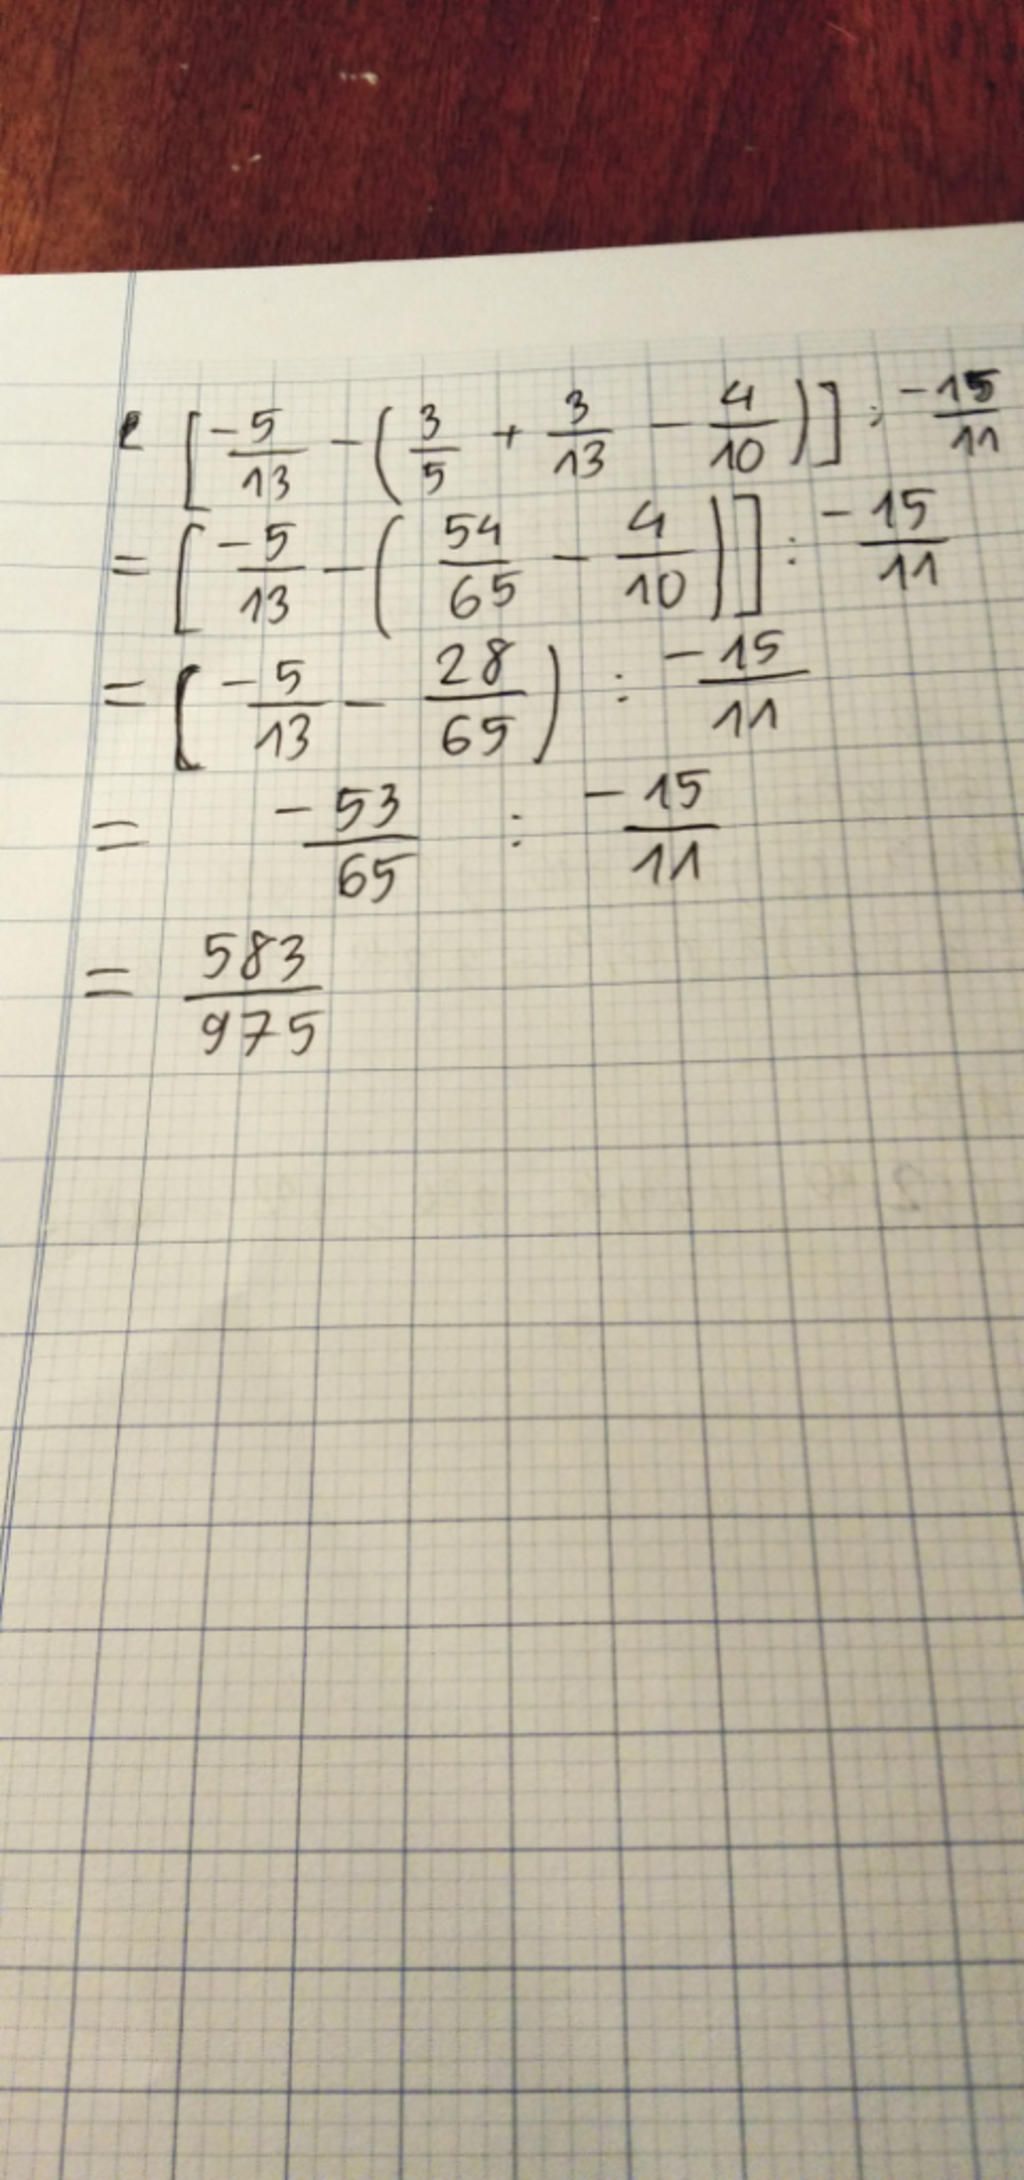 [-5/13 - (3/5 + 3/13 - 4/10)] : -15/11
= [-5/13 - (54/65 - 4/10)] : -15/11
= (-5/13 - 28/65) : -15/11
= -53/65 : -15/11
= 583/975